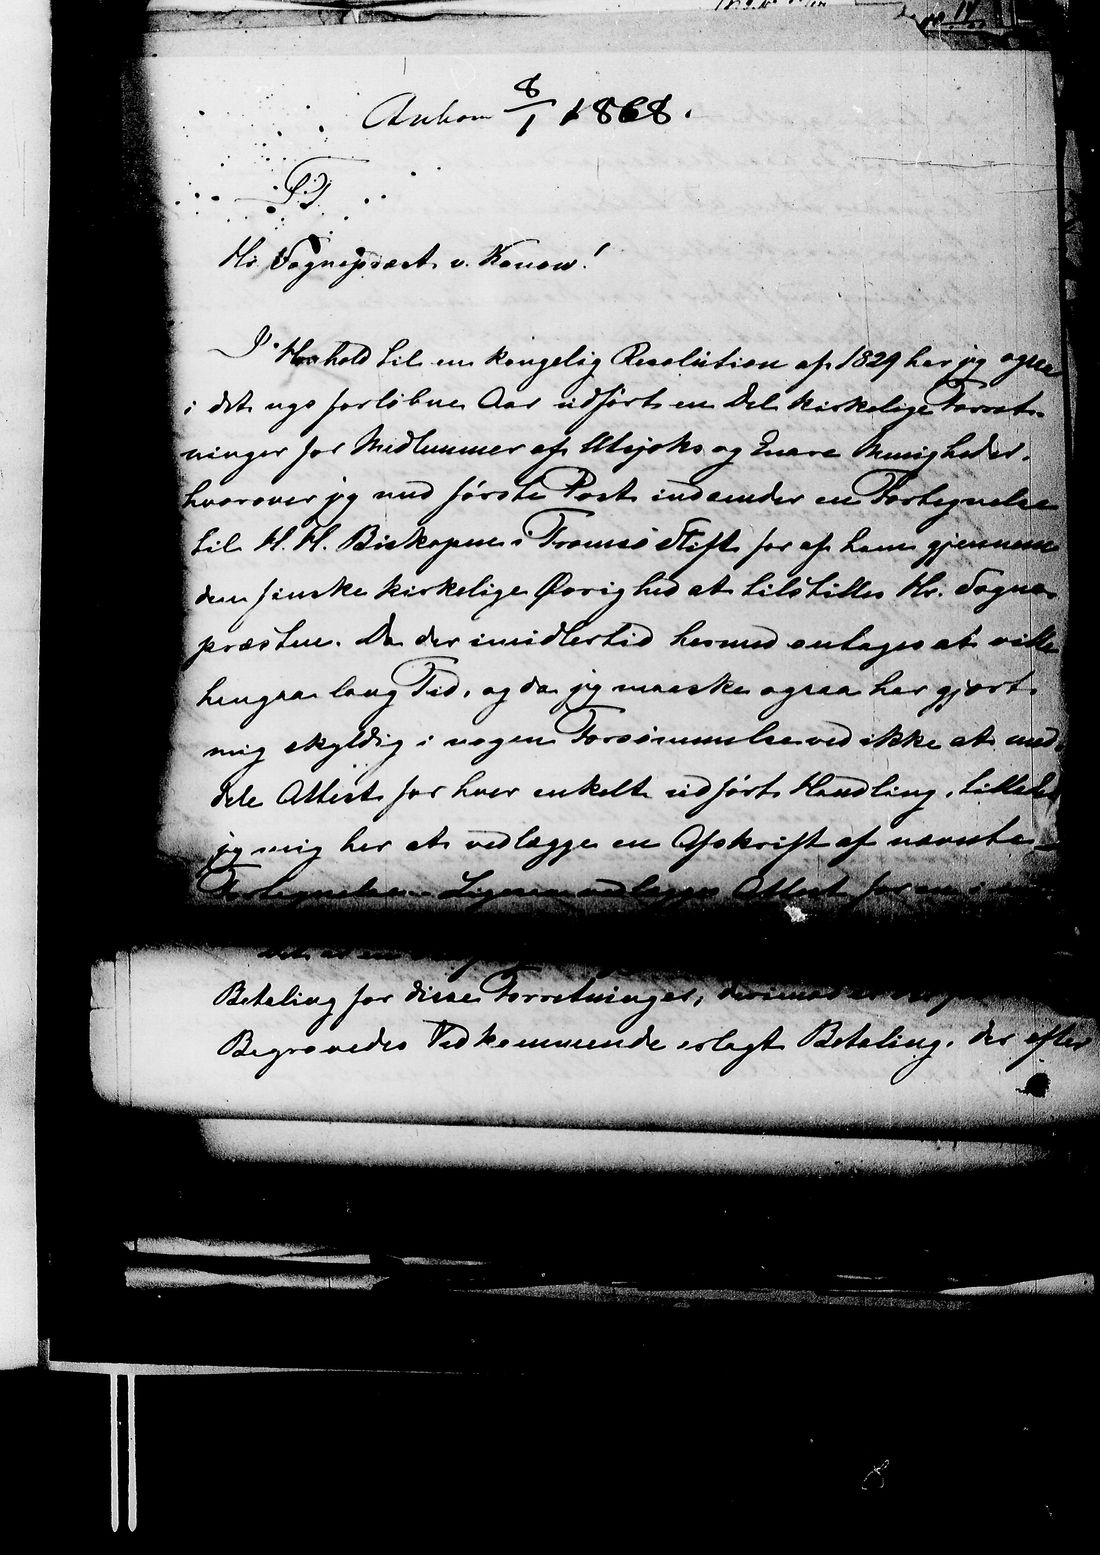 Ankom 8/1 1868.
S. T.
Hr. Sognepræst v. Konow!
I Henhold til en kongelig Resolution af 1829 har jeg ogsaa
i det nys forløbne Aar udført en Del kirkelige Forret-
ninger for Medlemmer af Utsjoks og Enare Menigheder,
hvorover jeg med første Post indsender en Fortegnelse
til H. H. Biskopen i Tromsø Stift for af ham gjennem
den finske kirkelige Øvrighed at tilstilles Hr. Sogne-
præsten. Da der imidlertid hermed antages at ville
hengaa lang Tid, og da jeg maaske ogsaa har gjort
mig skyldig i nogen Forsømmelse ved ikke at med-
dele Attest for hver enkelt udført Handling, tillader
jeg mig her at vedlægge en Afskrift af nævnte
Fortegnelse. Ligesaa vedlægges Attest for en i
Betaling for disse Forretninger, derimod er
Begravedes Vedkommende erlagt Betaling, der efter
8